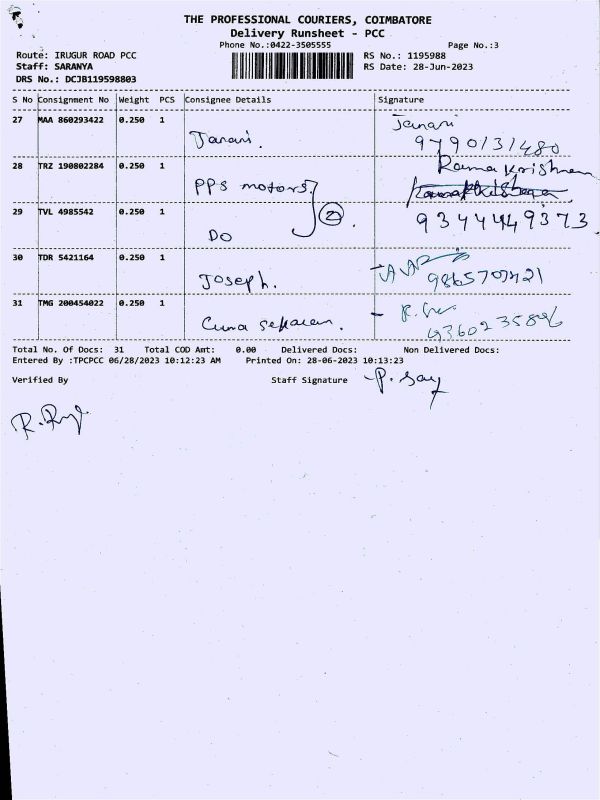 THE PROFESSIONAL COURIERS, COIMBATORE
Delivery Runsheet - PCC
Phone No.:0422-3505555 Page No.:3
Route: IRUGUR ROAD PCC RS No.: 1195988
Staff: SARANYA RS Date: 28-Jun-2023
DRS No.: DCJB119598803
S No Consignment No Weight PCS Consignee Details Signature
27 MAA 860293422 0.250 1 Janani. Janani
9790131480
28 TRZ 190802284 0.250 1 PPS motors. Rama Krishnan
29 TVL 4985542 0.250 1 DO (2). 9344449373
30 TDR 5421164 0.250 1 Joseph.
31 TMG 200454022 0.250 1
Total No. Of Docs: 31 Total COD Amt: 0.00 Delivered Docs: Non Delivered Docs:
Entered By :TPCPCC 06/28/2023 10:12:23 AM Printed On: 28-06-2023 10:13:23
Verified By Staff Signature